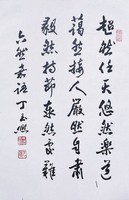 超然任天悠然樂道
藹然接人嚴然自肅
毅然持節泰然處難
六然 語 丁玉